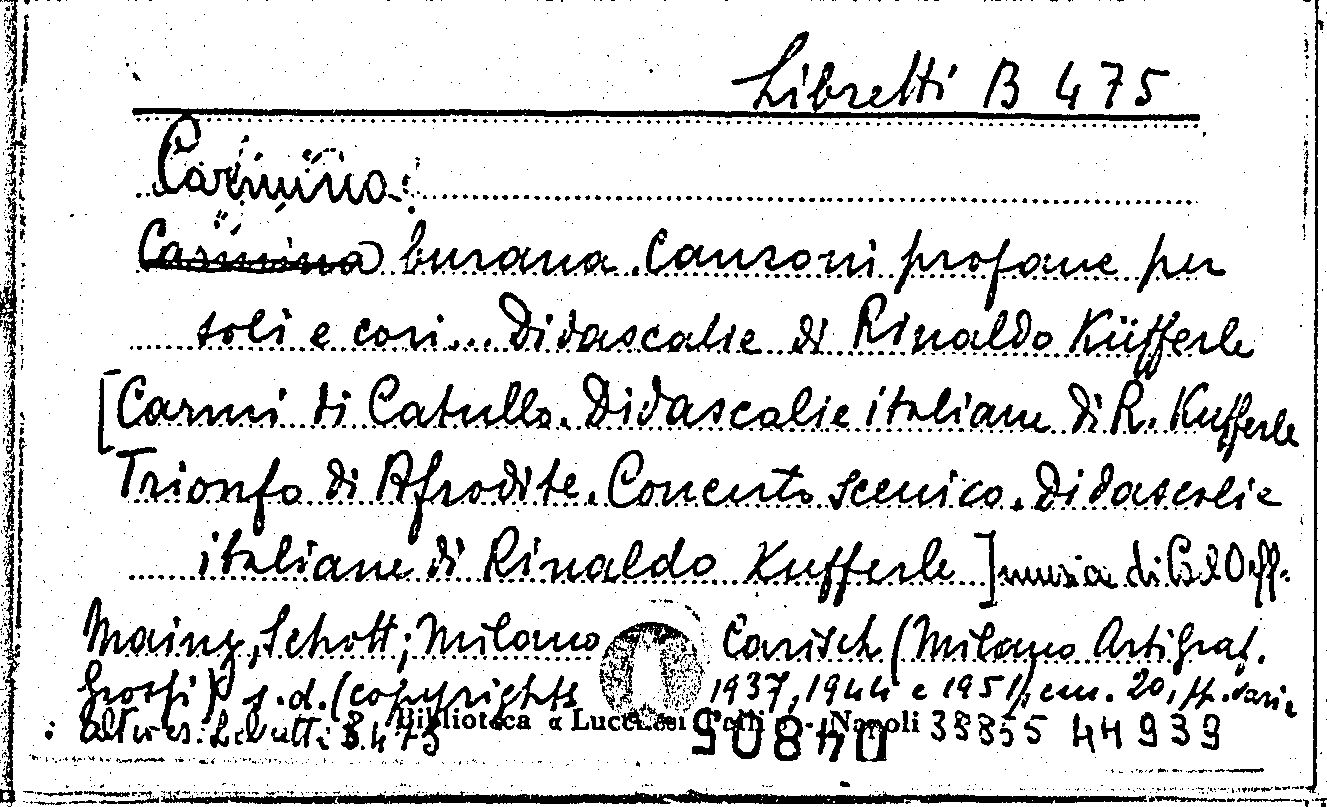 Libretti B 475
Carmina
Carmina burana. Canzoni profane per
soli e cori... Didascalie di Rinaldo Küfferle
[Carmi di Catullo. Didascalie italiane di R. Kufferle
Trionfo di Afrodite. Concerto scenico. Didascalie
italiane di Rinaldo Kufferle] musica di Orff.
Mainz, Schott; Milano Carisch (Milano Artigraf.
Grossi) s.d. (copyrights 1937, 1944 e 1951), cm. 20, pp. varie
: Altro es. Libretti B. 475 Biblioteca « Lucchesi Palli » - Napoli 38855 44939
50840